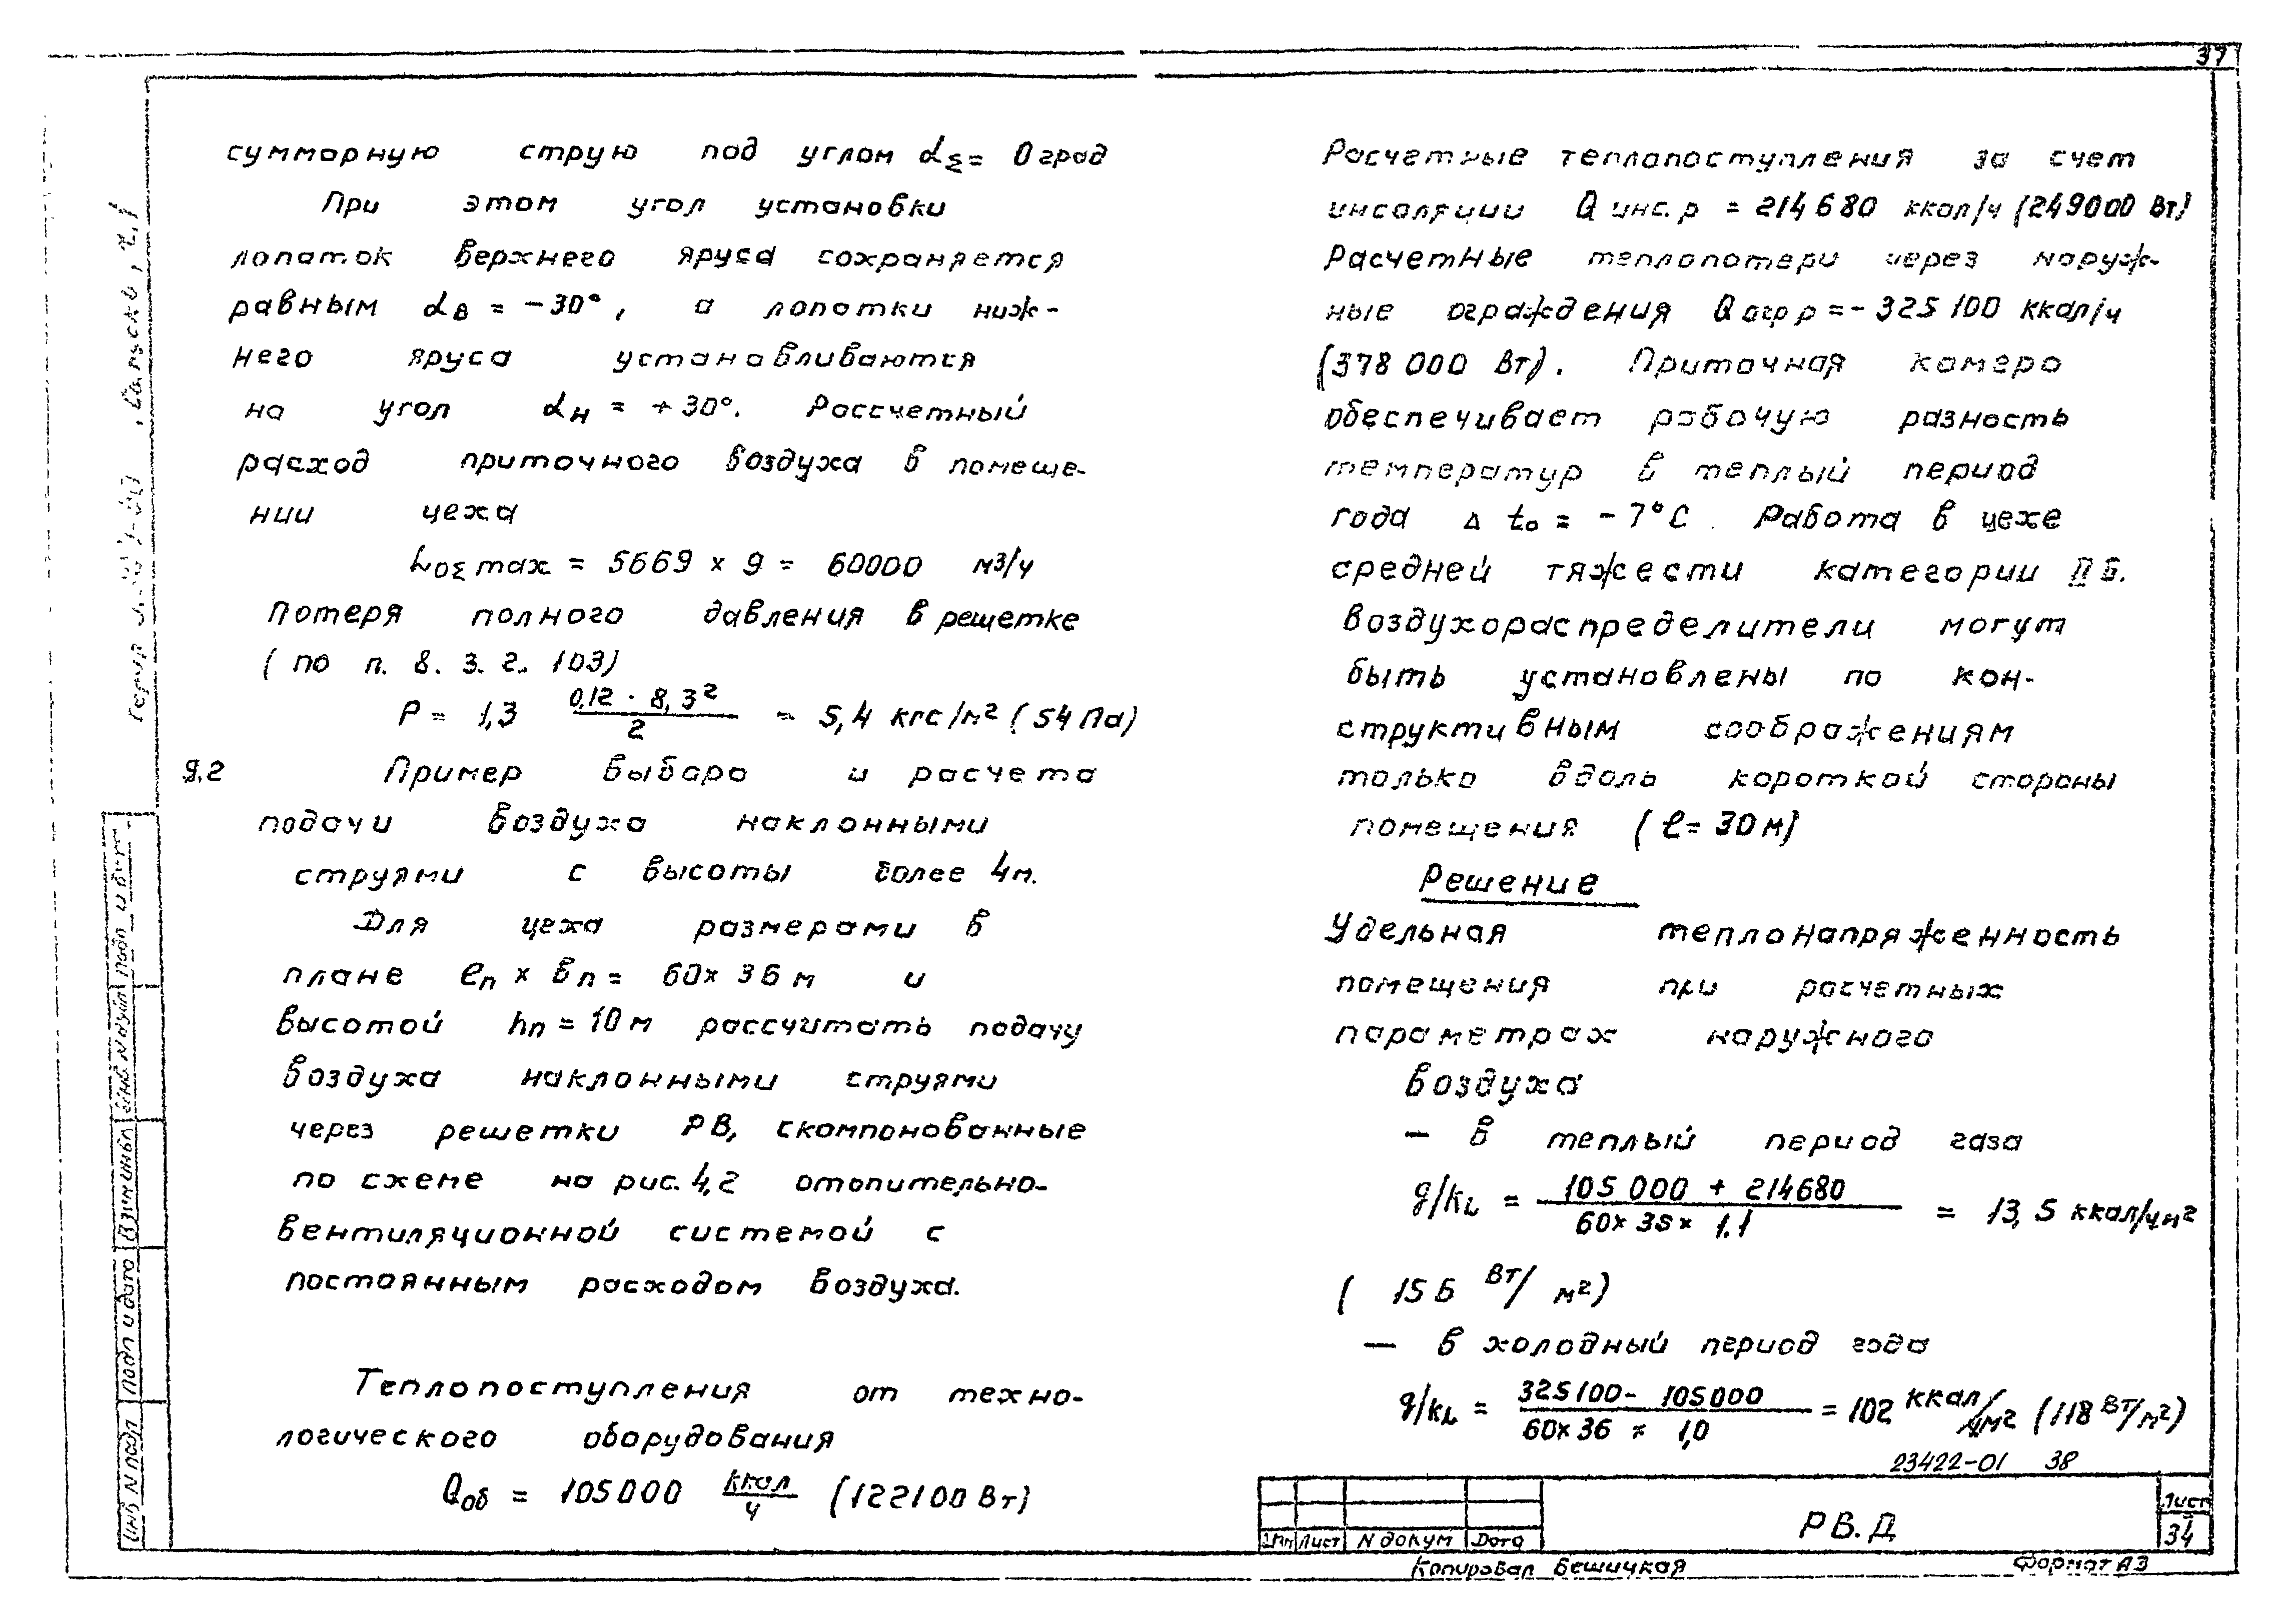 37
суммарную струю под углом α_Σ = 0 град
При этом угол установки
лопаток верхнего яруса сохраняется
равным α_в = -30°, а лопатки ниж-
него яруса устанавливаются
на угол α_н = +30°. Рассчетный
расход приточного воздуха в помеще-
нии цеха
L_0Σ max = 6669 x 9 = 60000 м3/ч
Потеря полного давления в решетке
(по п. 8.3.2. 103)
P = 1,3 (0,12 · 8,3²)/2 = 5,4 кгс/м² (54 Па)
9.2 Пример выбора и расчета
подачи воздуха наклонными
струями с высоты более 4м.
Для цеха размерами в
плане ℓп x вп = 60x36м и
высотой hп = 10м рассчитать подачу
воздуха наклонными струями
через решетки РВ, скомпонованные
по схеме на рис. 4,2 отопительно-
вентиляционной системой с
постоянным расходом воздуха.
Теплопоступления от техно-
логического оборудования
Qоб = 105000 ккал/ч (122100 Вт)
Расчетные теплопоступления за счет
инсоляции Q инс.р = 214680 ккал/ч (249000 Вт)
Расчетные теплопотери через наруж-
ные ограждения Q огр р = -325100 ккал/ч
(378000 Вт). Приточная камера
обеспечивает рабочую разность
температур в теплый период
года Δ t₀ = -7°С. Работа в цехе
средней тяжести категории II Б.
Воздухораспределители могут
быть установлены по кон-
структивным соображениям
только вдоль короткой стороны
помещения (ℓ = 30м)
Решение
Удельная теплонапряженность
помещения при расчетных
параметрах наружного
воздуха
— в теплый период газа
g/k_L = (105 000 + 214680)/(60x36x1.1) = 13,5 ккал/чм²
(156 Вт/м²)
— в холодный период года
g/k_L = (325100 - 105000)/(60x36x1,0) = 102 ккал/чм² (118 Вт/м²)
23422-01 38
РВ.Д
Лист
34
Лист N докум Дата
Копировал Бешицкая Формат А3
Инв N подл
Подп и дата
Взам инв
Инв N дубл
Подп и дат